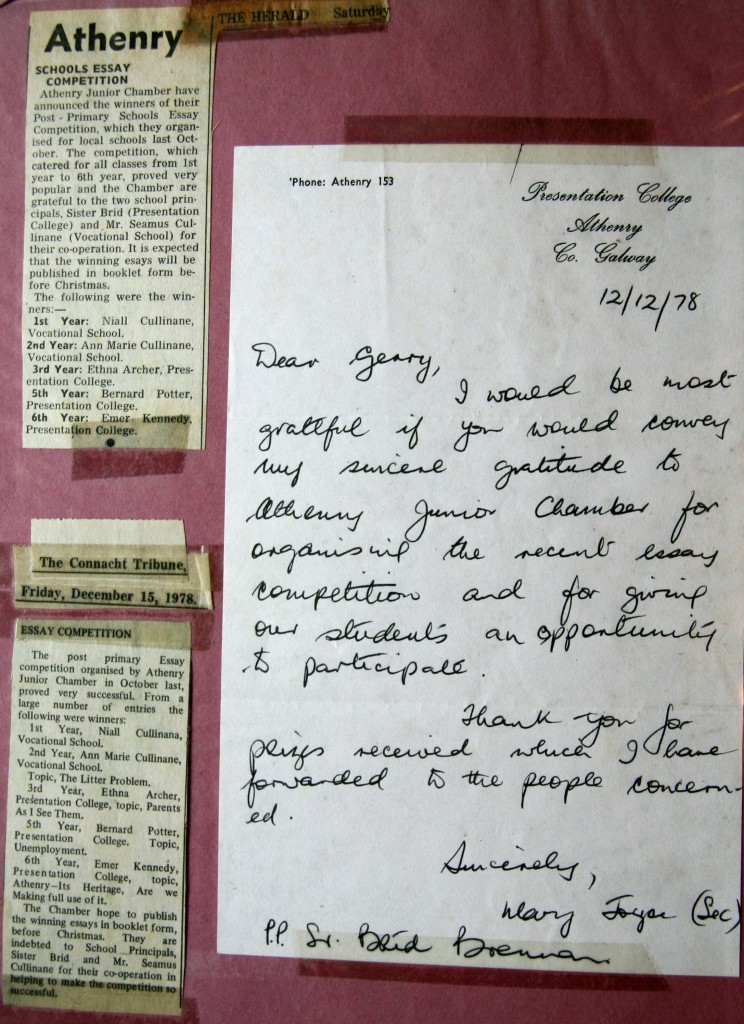 THE HERALD Saturday
Athenry
SCHOOLS ESSAY
COMPETITION
Athenry Junior Chamber have
announced the winners of their
Post - Primary Schools Essay
Competition, which they organ-
ised for local schools last Oct-
ober. The competition, which
catered for all classes from 1st
year to 6th year, proved very
popular and the Chamber are
grateful to the two school prin-
cipals, Sister Brid (Presentation
College) and Mr. Seamus Cul-
linane (Vocational School) for
their co-operation. It is expected
that the winning esays will be
published in booklet form be-
fore Christmas.
The following were the win-
ners:—
1st Year: Niall Cullinane,
Vocational School.
2nd Year: Ann Marie Cullinane,
Vocational School.
3rd Year: Ethna Archer, Pres-
entation College.
5th Year: Bernard Potter,
Presentation College.
6th Year: Emer Kennedy,
Presentation College.
The Connacht Tribune,
Friday, December 15, 1978.
ESSAY COMPETITION
The post primary Essay
competition organised by Athenry
Junior Chamber in October last,
proved very successful. From a
large number of entries the
following were winners:
1st Year, Niall Cullinana,
Vocational School.
2nd Year, Ann Marie Cullinane,
Vocational School.
Topic, The Litter Problem.
3rd Year, Ethna Archer,
Presentation College, topic, Parents
As I See Them.
5th Year, Bernard Potter,
Presentation College. Topic,
Unemployment.
6th Year, Emer Kennedy,
Presentation College, topic,
Athenry—Its Heritage, Are we
Making full use of it.
The Chamber hope to publish
the winning essays in booklet form,
before Christmas. They are
indebted to School Principals,
Sister Brid and Mr. Seamus
Cullinane for their co-operation in
helping to make the competition so
successful.
'Phone: Athenry 153
Presentation College
Athenry
Co. Galway
12/12/78
Dear Gerry,
I would be most
grateful if you would convey
my sincere gratitude to
Athenry Junior Chamber for
organising the recent essay
competition and for giving
our students an opportunity
to participate.
Thank you for
prizes received which I have
forwarded to the people concern-
ed.
Sincerely,
Mary (Sec)
P.P. Sr. Bríd Brennan